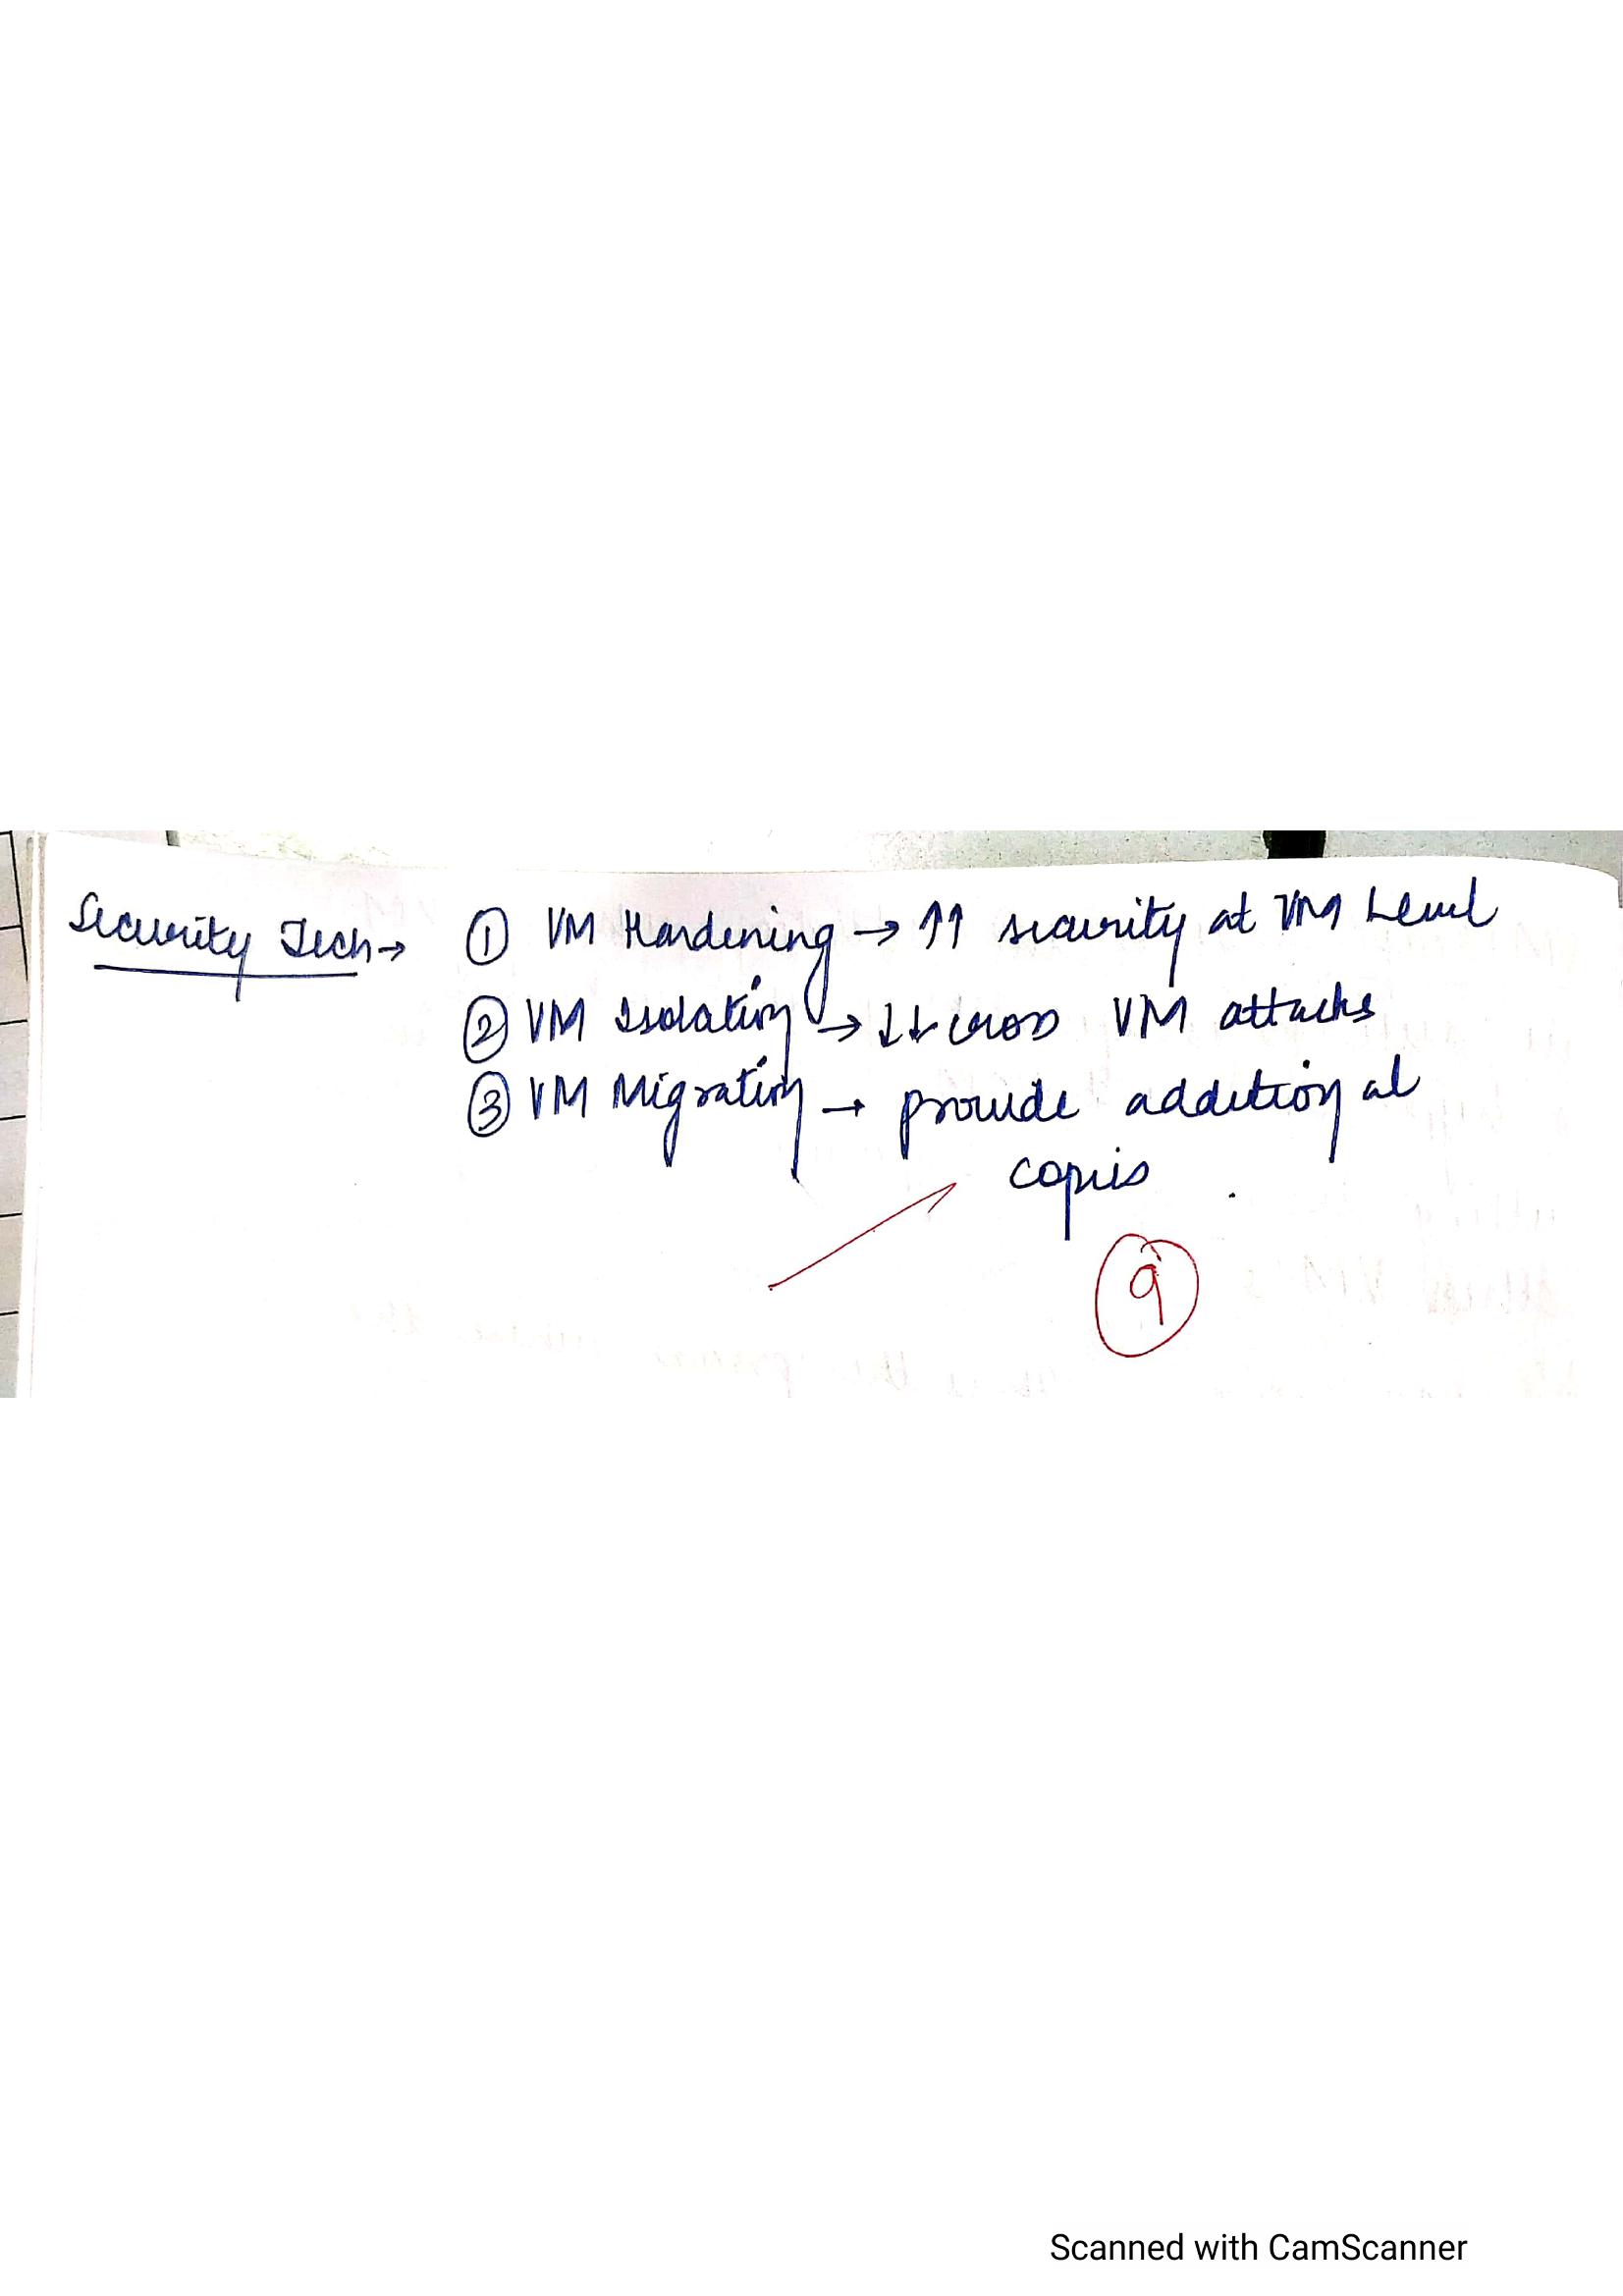 Security Tech → ① VM Hardening → ↑↑ security at VM Level
② VM Isolation → ↓↓ cross VM attacks
③ VM Migration → provide additional
copies
9
Scanned with CamScanner